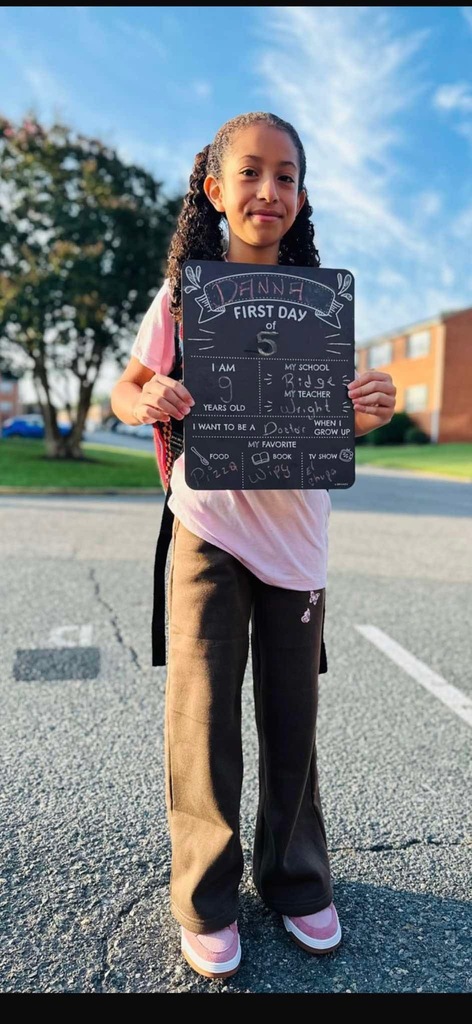 DANNA
FIRST DAY
of
5
I AM
9
YEARS OLD
MY SCHOOL
Ridge
MY TEACHER
Wright
I WANT TO BE A Doctor WHEN I GROW UP
MY FAVORITE
FOOD
Pizza
BOOK
Wipy
TV SHOW
el chavo